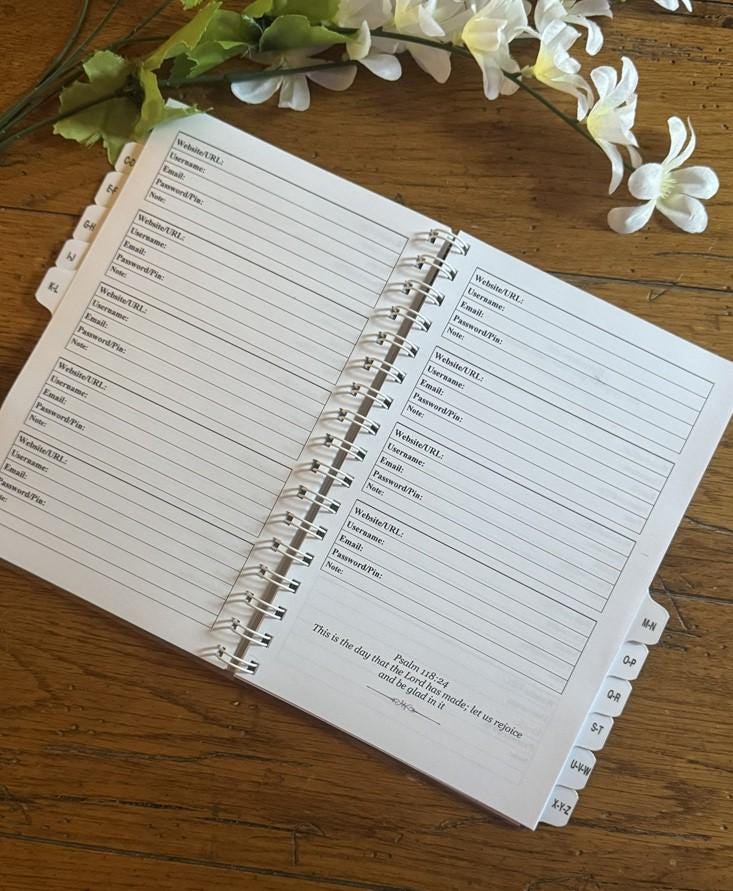 C-D
E-F
G-H
I-J
K-L
Website/URL:
Username:
Email:
Password/Pin:
Note:
Website/URL:
Username:
Email:
Password/Pin:
Note:
Website/URL:
Username:
Email:
Password/Pin:
Note:
Website/URL:
Username:
Email:
Password/Pin:
Note:
Website/URL:
Username:
Email:
Password/Pin:
Website/URL:
Username:
Email:
Password/Pin:
Note:
Website/URL:
Username:
Email:
Password/Pin:
Note:
Website/URL:
Username:
Email:
Password/Pin:
Note:
Website/URL:
Username:
Email:
Password/Pin:
Note:
Psalm 118:24
This is the day that the Lord has made; let us rejoice
and be glad in it
M-N
O-P
Q-R
S-T
U-V-W
X-Y-Z